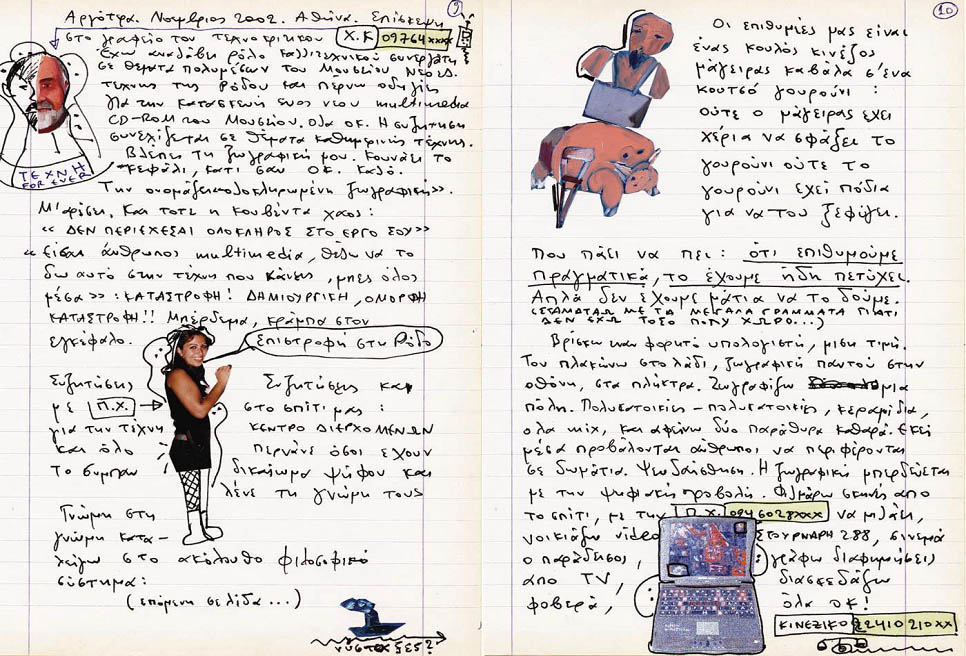 9
Αργότρα. Νοεμβριος 2002. Αθήνα. Επίσκεψη
στο γραφείο του τεχνοκριτικου Χ.Κ 09764xxx
Έχω αναλάβει ρόλο καλλιτεχνικού συνεργάτη
σε θέματα πολυμέσων του Μουσείου Νεοελ.
τέχνης της Ρόδου και περνω οδηγίες
για την κατασκευή ενος νεου multimedia
CD-ROM του Μουσείου. Ολα οκ. Η συζητηση
συνεχίζεται σε θέματα καθημερινής τέχνης.
Βλεπει τη ζωγραφική μου. Κουνάει το
κεφάλι, κατι σαν οκ. καλό.
Την ονομάζει «ολοκληρωμένη ζωγραφική».
ΤΕΧΝΗ
FOR EVER
Μ'αρέσει. Και τοτε η κουβέντα χαος:
«ΔΕΝ ΠΕΡΙΕΧΕΣΑΙ ΟΛΟΚΛΗΡΟΣ ΣΤΟ ΕΡΓΟ ΣΟΥ»
«Είσαι άνθρωπος multimedia, θέλω να το
δω αυτό στην τέχνη που κάνεις, μπες όλος
μέσα»: ΚΑΤΑΣΤΡΟΦΗ! ΔΗΜΙΟΥΡΓΙΚΗ, ΟΜΟΡΦΗ
ΚΑΤΑΣΤΡΟΦΗ!! Μπέρδεμα, κράμπα στον
εγκέφαλο.
Επιστροφή στη Ρόδο
Συζητήσεις
με Π.Χ.
για την τέχνη
και όλο
το συμπαν
Συζητήσεις και
στο σπίτι μας:
ΚΕΝΤΡΟ ΔΙΕΡΧΟΜΕΝΩΝ
περνάνε όσοι έχουν
δικαίωμα ψήφου και
λένε τη γνώμη τους
Γνώμη στη
γνώμη κατα-
λήγω στο ακόλουθο φιλοσοφικό
σύστημα:
(επόμενη σελίδα...)
10
Οι επιθυμίες μας είναι
ένας κουλός κινέζος
μάγειρας καβάλα σ'ένα
κουτσό γουρούνι:
ούτε ο μάγειρας έχει
χέρια να σφάξει το
γουρούνι ούτε το
γουρούνι έχει πόδια
για να του ξεφύγει.
Που πάει να πει: ότι επιθυμούμε
πραγματικά, το έχουμε ήδη πετύχει.
Απλά δεν έχουμε μάτια να το δούμε.
(ΣΤΑΜΑΤΑΩ ΜΕ ΤΑ ΜΕΓΑΛΑ ΓΡΑΜΜΑΤΑ ΓΙΑΤΙ
ΔΕΝ ΕΧΩ ΤΟΣΟ ΠΟΛΥ ΧΩΡΟ...)
Βρίσκω εναν φορητό υπολογιστή, μιση τιμή.
Τον πλακώνω στο λάδι, ζωγραφική παντού στην
οθόνη, στα πλήκτρα. Ζωγραφίζω μια
πόλη. Πολυκατοικίες-πολυκατοικίες, κεραμίδια,
ολα mix, και αφήνω δύο παράθυρα καθαρά. Εκεί
μέσα προβάλονται άνθρωποι να περιφέρονται
σε δωμάτια. Ψευδαίσθηση. Η ζωγραφική μπερδεύεται
με την ψηφιακή προβολή. Φιλμάρω σκηνές απο
το σπίτι, με την Π.Χ. 0946028xxx να μιλάει,
νοικιάζω video ΣΤΟΥΡΝΑΡΗ 288, σινεμά
ο παράδεισος, γράφω διαφημίσεις
απο TV, διασκεδάζω
φοβερά, όλα οκ!
ΚΙΝΕΖΙΚΟ 22410 210xx